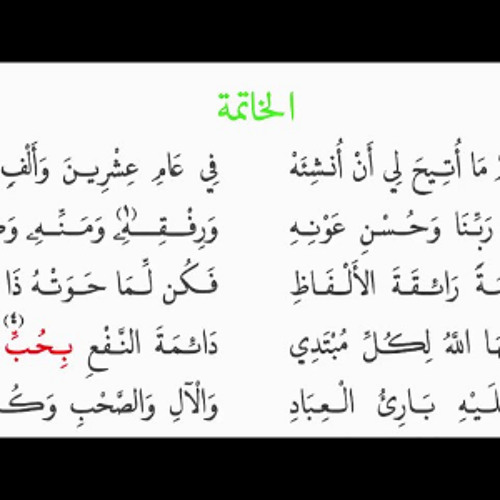 الخاتمة
مَا أُتِيحَ لِي أَنْ أُنشِئَهْ فِي عَامِ عِشْرِينَ وَأَلْفِ
رَبِّنَا وَحُسْنِ عَوْنِهِ وَرِفْقِهِ (١) وَمَنِّهِ
رَائِقَةَ الأَلْفَاظِ فَكُن لِّمَا حَوَتْهُ ذَا
اللَّهُ لِكُلِّ مُبْتَدِي دَائِمَةَ النَّفْعِ بِحُبِّ (٤)
بَارِئُ الْعِبَادِ وَالْآلِ وَالصَّحْبِ